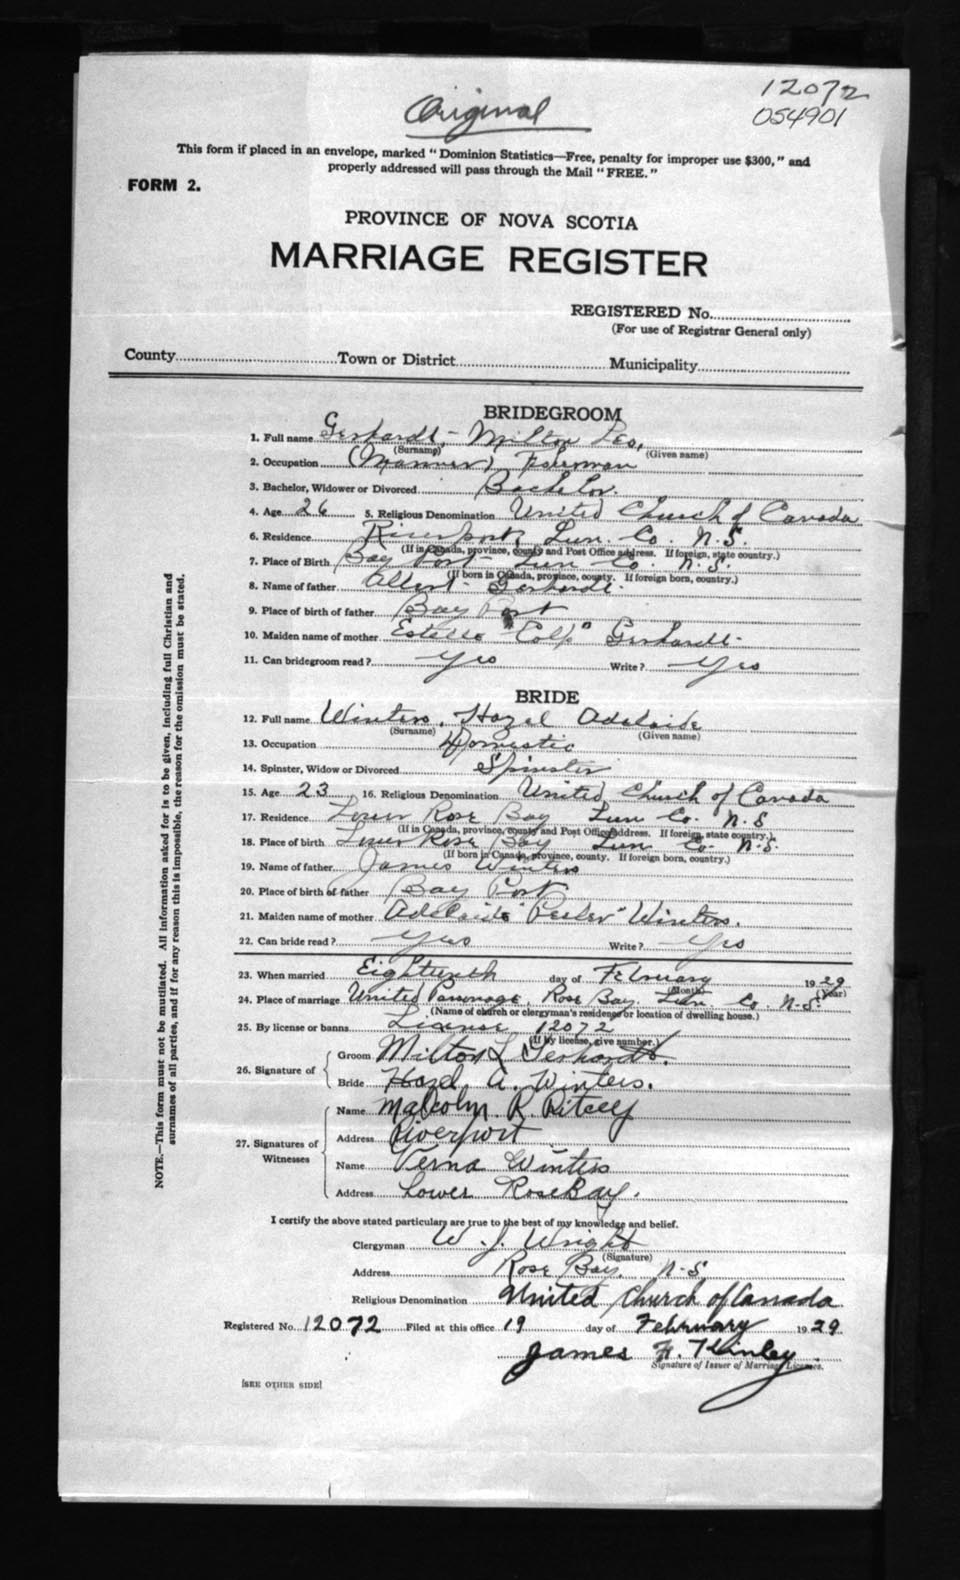 Original
12072
054901
This form if placed in an envelope, marked "Dominion Statistics—Free, penalty for improper use $300," and
properly addressed will pass through the Mail "FREE."
FORM 2.
PROVINCE OF NOVA SCOTIA
MARRIAGE REGISTER
REGISTERED No.
(For use of Registrar General only)
County Town or District Municipality
BRIDEGROOM
1. Full name Gerhardt, Milton Leo,
(Surname) (Given name)
2. Occupation (Mariner) Fisherman
3. Bachelor, Widower or Divorced Bachelor.
4. Age 26 5. Religious Denomination United Church of Canada
6. Residence Riverport, Lun. Co. N.S.
(If in Canada, province, county and Post Office address. If foreign, state country.)
7. Place of Birth Bay Port Lun Co. N.S.
(If born in Canada, province, county. If foreign born, country.)
8. Name of father Albert Gerhardt
9. Place of birth of father Bay Port
10. Maiden name of mother Estelle "Colp" Gerhardt
11. Can bridegroom read? Yes Write? Yes
BRIDE
12. Full name Winters, Hazel Adelaide
(Surname) (Given name)
13. Occupation Domestic
14. Spinster, Widow or Divorced Spinster
15. Age 23 16. Religious Denomination United Church of Canada
17. Residence Lower Rose Bay Lun Co. N.S
(If in Canada, province, county and Post Office address. If foreign, state country.)
18. Place of birth Lower Rose Bay Lun Co. N.S.
(If born in Canada, province, county. If foreign born, country.)
19. Name of father James Winters
20. Place of birth of father Bay Port
21. Maiden name of mother Adelaide Winters.
22. Can bride read? Yes Write? Yes
23. When married Eighteenth day of February 1929
(Month) (Year)
24. Place of marriage United Parsonage, Rose Bay. Lun. Co. N.S.
(Name of church or clergyman's residence or location of dwelling house.)
25. By license or banns License 12072
(If by license, give number.)
26. Signature of
Groom Milton L Gerhardt.
Bride Hazel A. Winters.
27. Signatures of Witnesses
Name Malcolm R. Ritcey
Address Riverport
Name Verna Winters
Address Lower RoseBay.
I certify the above stated particulars are true to the best of my knowledge and belief.
Clergyman W. J. Wright
(Signature)
Address Rose Bay, N.S.
Religious Denomination United Church of Canada
Registered No. 12072 Filed at this office 19 day of February 1929
James F. Kinley
Signature of Issuer of Marriage Licenses.
[SEE OTHER SIDE]
NOTE.—This form must not be mutilated. All information asked for is to be given, including full Christian and
surnames of all parties, and if for any reason this is impossible, the reason for the omission must be stated.